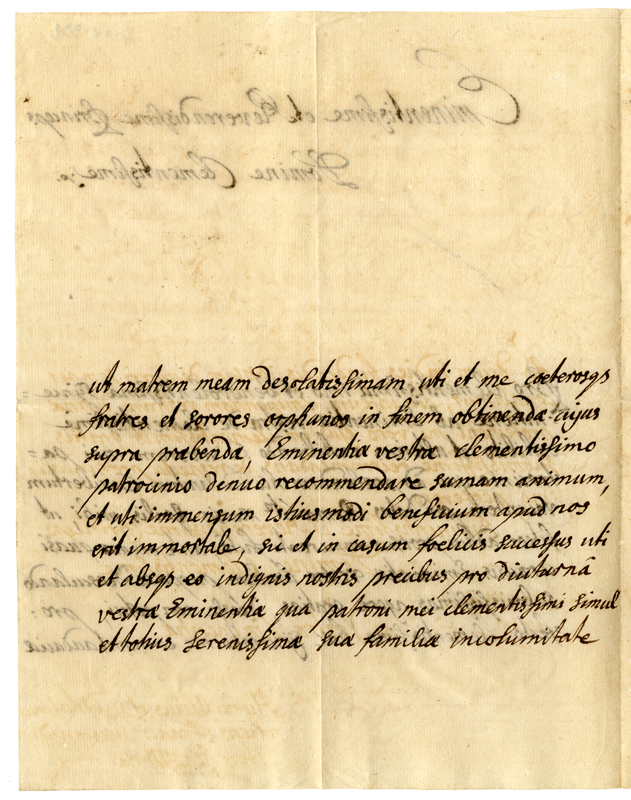 ut matrem meam desolatissimam, uti et me coeterosqs
fratres et sorores orphanos in finem obtinendæ cujus
supra præbendæ, Eminentiæ vestræ clementissimo
patrocinio denuo recommendare sumam animum,
et uti immensum istiusmodi beneficium apud nos
erit immortale, sic et in casum foelicis successus uti
et absqs eo indignis nostris precibus pro diuturnâ
vestræ Eminentiæ qua patroni mei clementissimi simul
et totius serenissimæ suæ familiæ incolumitate